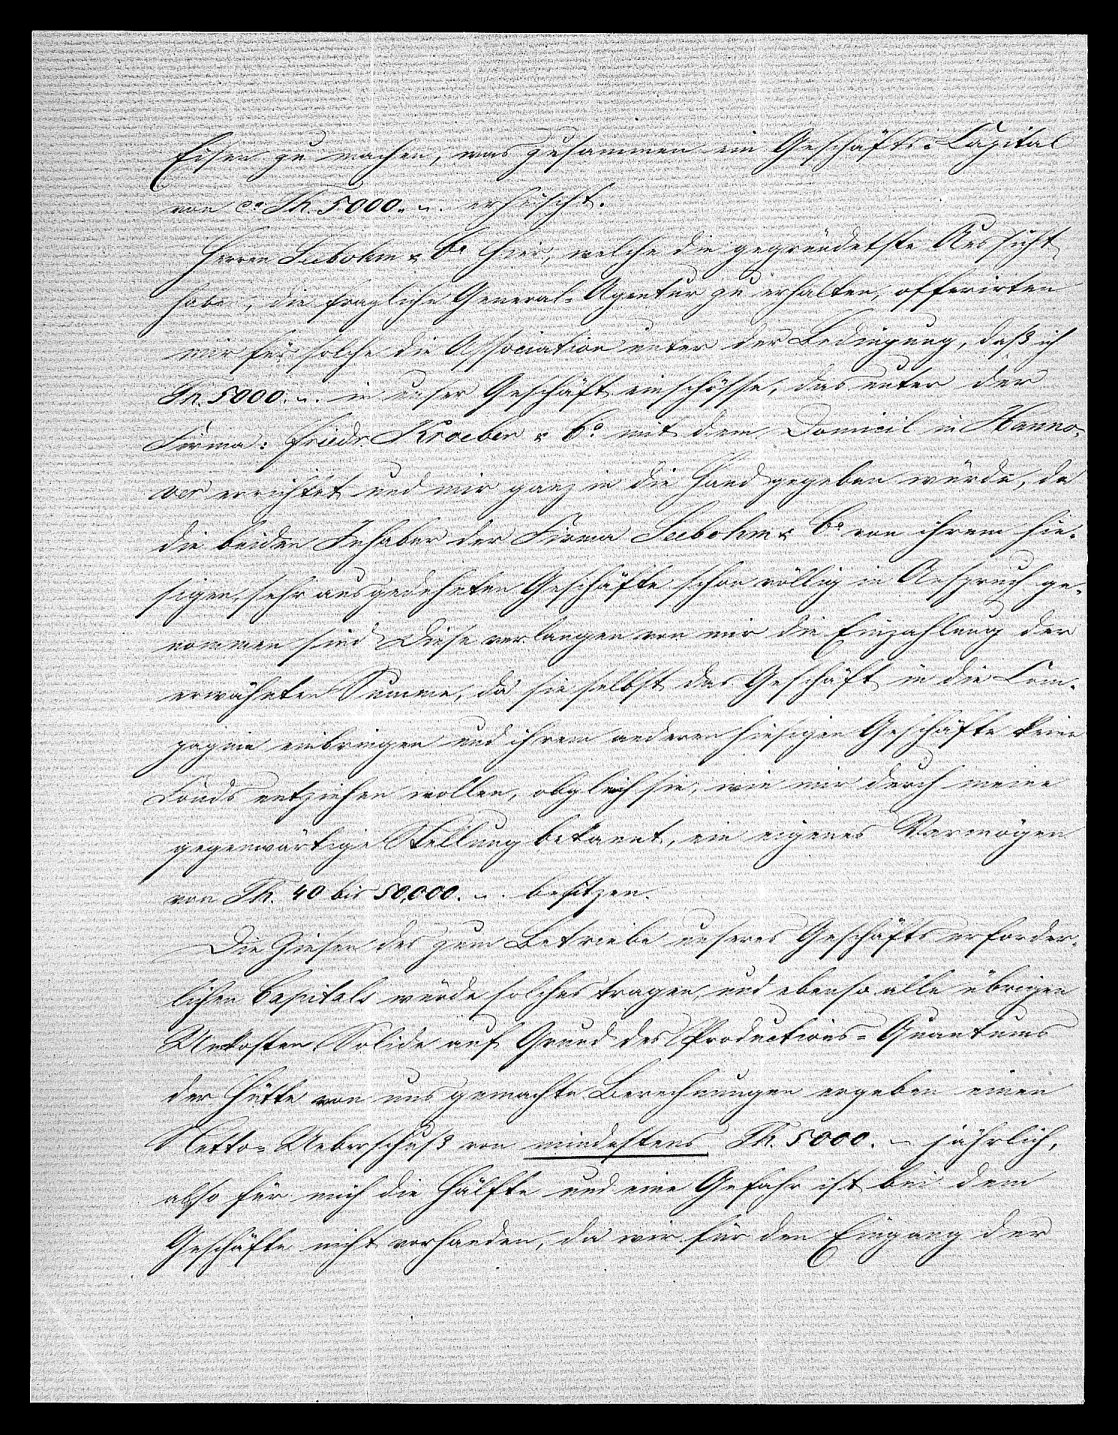 Eisen zu machen, was zusammen ein Geschäfts-Capital
von ca Th. 5000. ~. erheischt.
Herren Seebohm & Co hier, welche die gegründetste Aussicht
haben, die fragliche General-Agentur zu erhalten, offerirten
mir für solche die Association unter der Bedingung, daß ich
Th. 5000. ~. in unser Geschäft einschösse, das unter der
Firma: Friedr Kroeber & Co mit dem Domicil in Hanno-
ver errichtet und mir ganz in die Hand gegeben würde, da
die beiden Inhaber der Firma Seebohm & Co von ihrem hie-
sigen, sehr ausgedehnten Geschäfte schon völlig in Anspruch ge-
nommen sind Diese verlangen von mir die Einzahlung der
erwähnten Summe, da sie selbst das Geschäft in die Com-
pagnie einbringen und ihrem anderen hiesigen Geschäfte keine
Fonds entziehen wollen, obgleich sie, wie mir durch meine
gegenwärtige Stellung bekannt, ein eigenes Vermögen
von Th. 40 bis 50,000. ~. besitzen.
Die Zinsen des zum Betriebe unseres Geschäfts erforder-
lichen Capitals würde solches tragen, und ebenso alle übrigen
Unkosten Solide auf Grund des Productions-Quantums
der Hütte von uns gemachte Berechnungen ergeben einen
Netto-Ueberschuß von mindestens Th. 5000. ~ jährlich,
also für mich die Hälfte und eine Gefahr ist bei dem
Geschäfte nicht vorhanden, da wir für den Eingang der